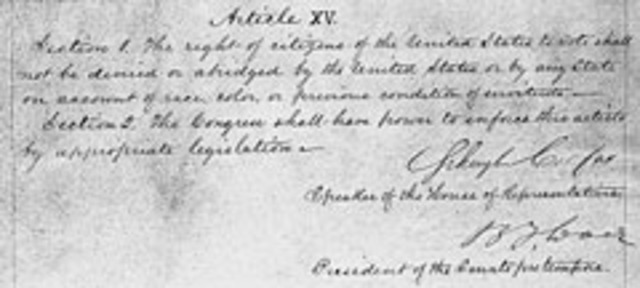 Article XV.
Section 1. The right of citizens of the United States to vote shall
not be denied or abridged by the United States or by any State
on account of race, color, or previous condition of servitude—
Section 2. The Congress shall have power to enforce this article
by appropriate legislation—
Schuyler Colfax
Speaker of the House of Representatives.
President of the Senate pro tempore.